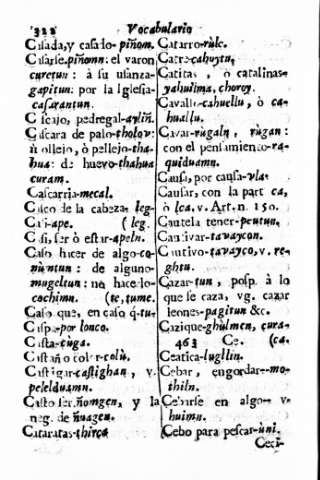 322 Vocabulario
Casada, y casarlo-piñom.
Casarse. piñomn: el varon
curetun: à su usanza-
gapitun: por la Iglesia-
casarantun.
Cascajo, pedregal-aylin.
Cascara de palo-tholov:
ù ollejo, ò pellejo-tha-
hua: de huevo-thahua
curam.
Cascarria-mecal.
Casco de la cabeza leg-
Casi-ape. (leg.
Casi, ser ò estar-apeln.
Caso hacer de algo-co-
nùntun: de alguno-
mugeltun: no hacerlo-
cochimn. (te, tume.
Caso que, en caso q-tu-
Caspa-por lonco.
Casta-cuga.
Castaño color-colù.
Castigar-castighan, v.
pelelduamn.
Casto ser ñomgen, y la
neg. de ñuagen.
Cataratas-thirca
Catarro-rùlc.
Catre-cahuytu.
Catitas, ò catalinas-
yahuilma, choroy.
Cavallo-cahuellu, ò ca-
huallu.
Cavar-rùgaln, rùgan:
con el pensamiento-ra-
quiduamn.
Causa, por causa-vla.
Causar, con la part ca,
ò lca. v. Art. n. 150.
Cautela tener-peutun.
Cautivar-tavaycon.
Cautivo-tavayco, v. re-
ghtu.
Cazar-tun, posp. à lo
que se caza, vg. cazar
leones-pagitun &c.
Cazique-ghùlmen, cura-
463 Ce. (ca.
Ceatica-lugllin.
Cebar, engordar--mo-
thiln.
Cebarse en algo- v.
huimn.
Cebo para pescar-uni.
Ceci-